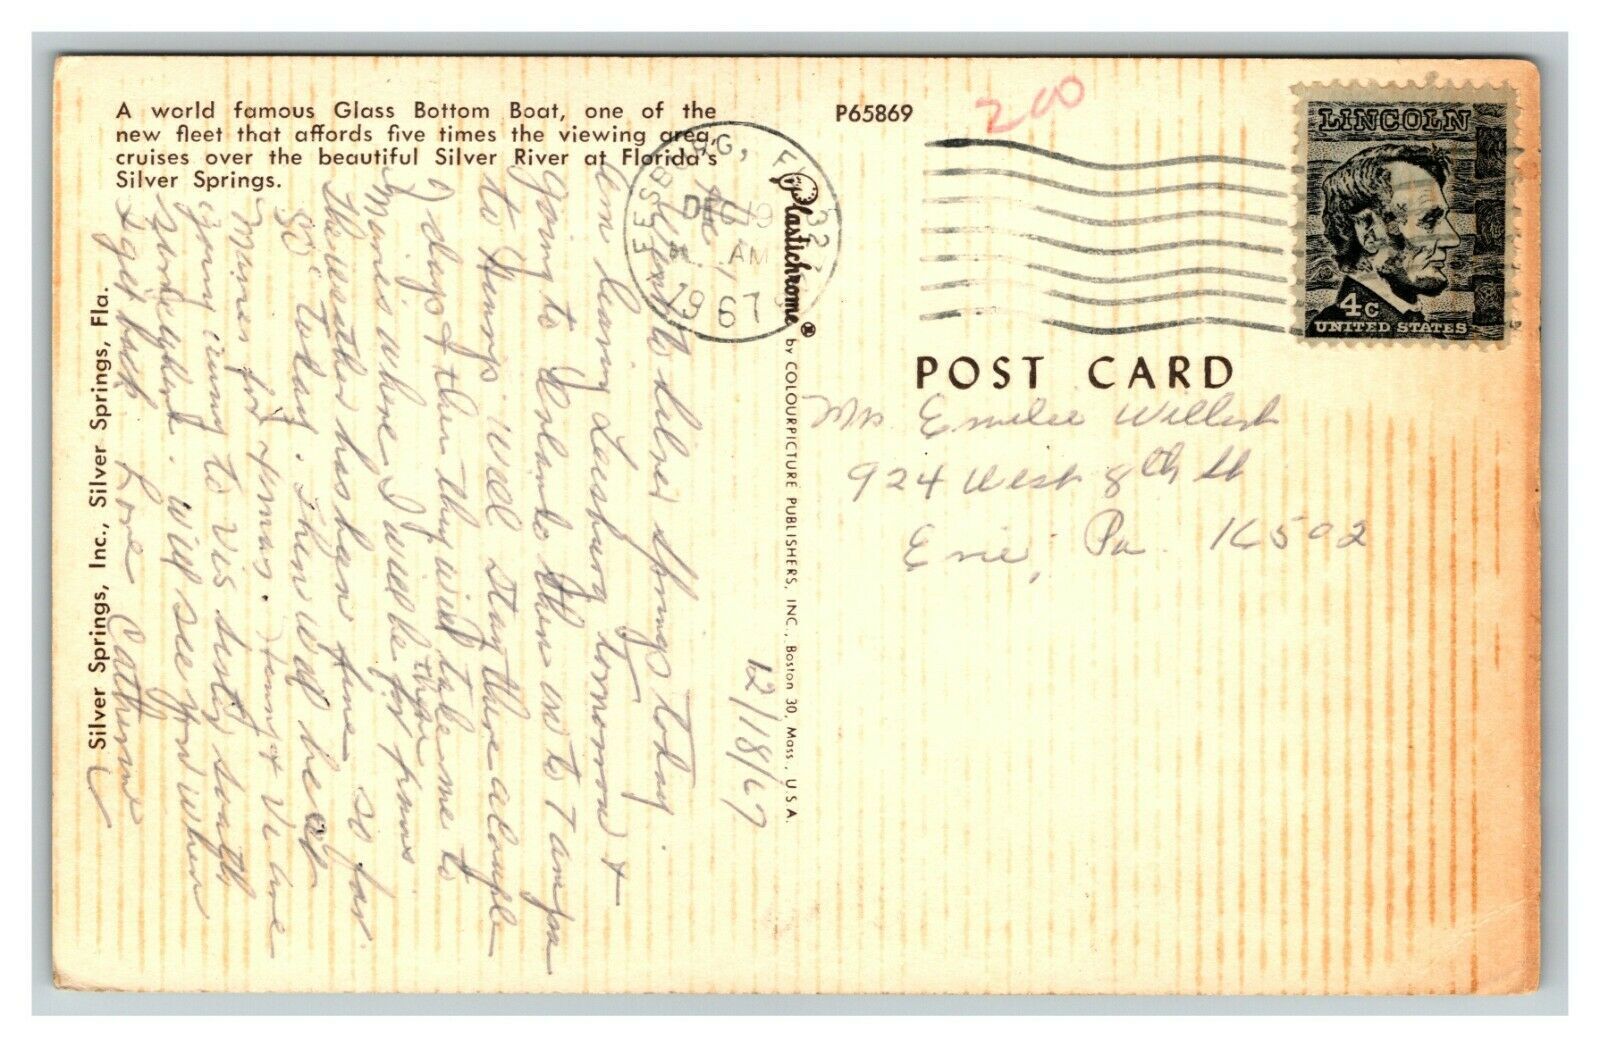 A world famous Glass Bottom Boat, one of the
new fleet that affords five times the viewing area,
cruises over the beautiful Silver River at Florida's
Silver Springs.
P65869
200
LINCOLN
4c
UNITED STATES
EESBURG, FL
DEC 19
AM
1967
POST CARD
Mrs Emilie
924 West 8th St
Erie, Pa 16502
Plastichrome® by COLOURPICTURE PUBLISHERS, INC., Boston 30, Mass., U.S.A.
12/18/67
went to Silver Springs today.
Am leaving Leesburg tomorrow +
going to Orlando then on to Tampa
to Henrys. Will stay there a couple
of days + then they will take me to
Maries where I will be for Xmas
The weather has been fine so far
80° today. Then will be at
Maries for Xmas. Henry + Vi are
going to Vis sister south
. Will see you when
I get back. Love Catherine
Silver Springs, Inc., Silver Springs, Fla.